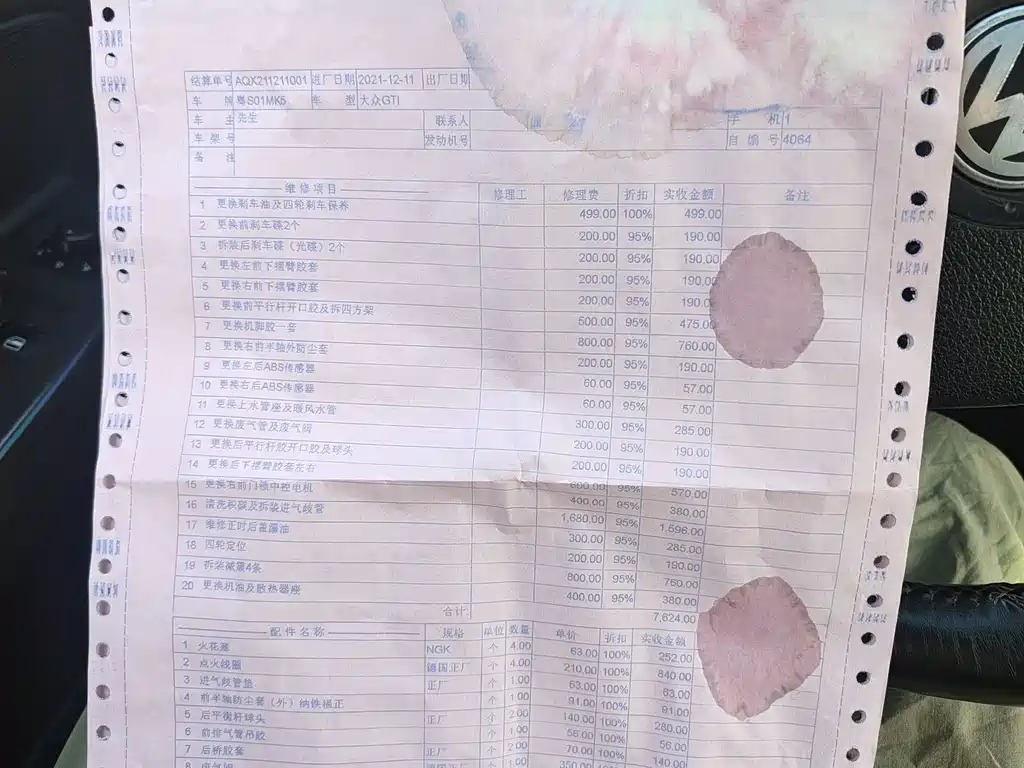 结算单号 AQX211211001 进厂日期 2021-12-11 出厂日期
车 牌 粤S01MK5 车 型 大众GTI
车 主 先生 联系人 手 机 1
车 架 号 发动机号 自 编 号 4064
备 注
维修项目 修理工 修理费 折扣 实收金额 备注
1 更换刹车油及四轮刹车保养 499.00 100% 499.00
2 更换前刹车碟2个 200.00 95% 190.00
3 拆装后刹车碟（光碟）2个 200.00 95% 190.00
4 更换左前下摆臂胶套 200.00 95% 190.00
5 更换右前下摆臂胶套 200.00 95% 190.00
6 更换前平行杆开口胶及拆四方架 500.00 95% 475.00
7 更换机脚胶一套 800.00 95% 760.00
8 更换右前半轴外防尘套 200.00 95% 190.00
9 更换左后ABS传感器 60.00 95% 57.00
10 更换右后ABS传感器 60.00 95% 57.00
11 更换上水管座及暖风水管 300.00 95% 285.00
12 更换废气管及废气阀 200.00 95% 190.00
13 更换后平行杆胶开口胶及球头 200.00 95% 190.00
14 更换后下摆臂胶套左右 600.00 95% 570.00
15 更换右前门锁中控电机 400.00 95% 380.00
16 清洗积碳及拆装进气歧管 1,680.00 95% 1,596.00
17 维修正时后盖漏油 300.00 95% 285.00
18 四轮定位 200.00 95% 190.00
19 拆装减震4条 800.00 95% 760.00
20 更换机油及散热器座 400.00 95% 380.00
合计: 7,624.00
配件名称 规格 单位 数量 单价 折扣 实收金额
1 火花塞 NGK 个 4.00 63.00 100% 252.00
2 点火线圈 德国正厂 个 4.00 210.00 100% 840.00
3 进气歧管垫 正厂 个 1.00 63.00 100% 63.00
4 前半轴防尘套（外）纳铁福正 个 1.00 91.00 100% 91.00
5 后平衡杆球头 正厂 个 2.00 140.00 100% 280.00
6 前排气管吊胶 个 1.00 56.00 100% 56.00
7 后桥胶套 正厂 个 2.00 70.00 100% 140.00
8 德国正厂 个 1.00 350.00 100%